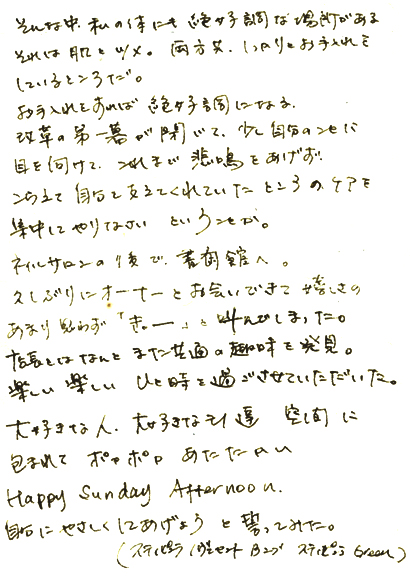 そんな中、私の体にも絶好調な場所がある
それは肌とツメ。両方共、しっかりとお手入れを
しているところだ。
お手入れをすれば絶好調になる。
改革の第一幕が閉じて、少し自分のことに
目を向けて、これまで悲鳴をあげず
こらえて自分を支えてくれていたところのケアを
集中してやりなさいということか。
ネイルサロンの後で、書斎館へ。
久しぶりにオーナーとお会いできて嬉しさの
あまり思わず「きゃー」と叫んでしまった。
店長とはなんとまた共通の趣味を発見。
楽しい楽しいひと時を過ごさせていただいた。
大好きな人、大好きなモノ達 空間に
包まれて ポカポカ あたたかい
Happy Sunday Afternoon.
自分にやさしくしてあげようと誓ってみた。
(スティピュラ Green)